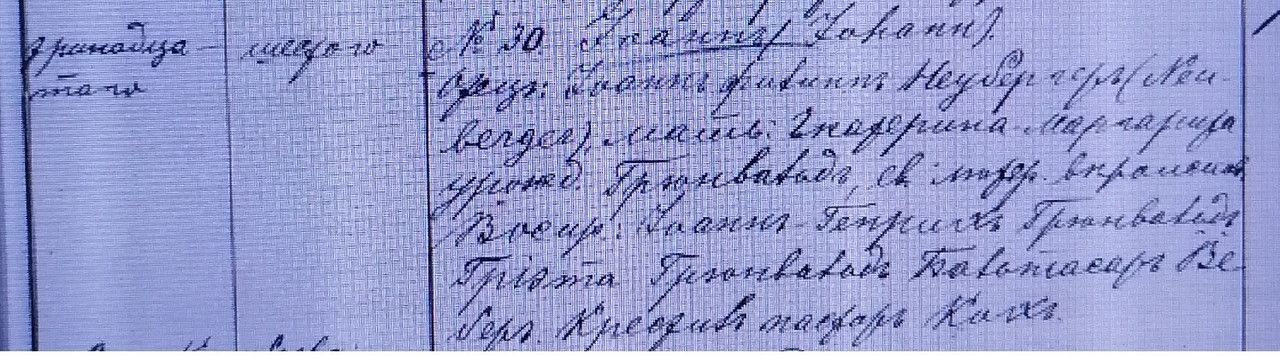 тринадца- шестого № 30 Іоаннъ (Johann).
таго
Отецъ: Іоаннъ Филиппъ Неубергеръ (Neu-
berger), мать: Екатерина-Маргарита
урожд. Грюнвальдъ, ев. лютер. вѣроиспов.
Воспр.: Іоаннъ-Генрихъ Грюнвальдъ
Гріэта Грюнвальдъ Балтасаръ Ве-
беръ. Крестилъ пасторъ Кохъ.